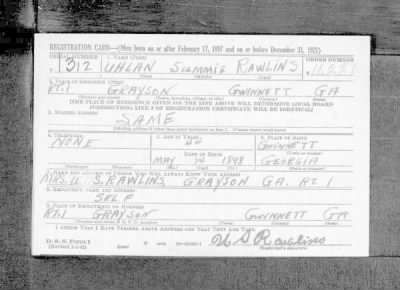 REGISTRATION CARD—(Men born on or after February 17, 1897 and on or before December 31, 1921)
SERIAL NUMBER 1. NAME (Print) ORDER NUMBER
1312 UHLAN SUMMIE RAWLINS
(First) (Middle) (Last)
2. PLACE OF RESIDENCE (Print)
RT.1 GRAYSON GWINNETT GA
(Number and street) (Town, township, village, or city) (County) (State)
[THE PLACE OF RESIDENCE GIVEN ON THE LINE ABOVE WILL DETERMINE LOCAL BOARD
JURISDICTION; LINE 2 OF REGISTRATION CERTIFICATE WILL BE IDENTICAL]
3. MAILING ADDRESS
SAME
[Mailing address if other than place indicated on line 2. If same insert word same]
4. TELEPHONE 5. AGE IN YEARS 6. PLACE OF BIRTH
NONE 44 GWINNETT
DATE OF BIRTH (Town or county)
MAY 1898 GEORGIA
(Exchange) (Number) (Mo.) (Day) (Yr.) (State or country)
7. NAME AND ADDRESS OF PERSON WHO WILL ALWAYS KNOW YOUR ADDRESS
MRS. U. S. RAWLINS GRAYSON GA. RT. 1
8. EMPLOYER'S NAME AND ADDRESS
SELF
9. PLACE OF EMPLOYMENT OR BUSINESS
RT.1 GRAYSON GWINNETT GA
(Number and street or R. F. D. number) (Town) (County) (State)
I AFFIRM THAT I HAVE VERIFIED ABOVE ANSWERS AND THAT THEY ARE TRUE.
D. S. S. Form 1 U S Rawlins
(Registrant's signature)